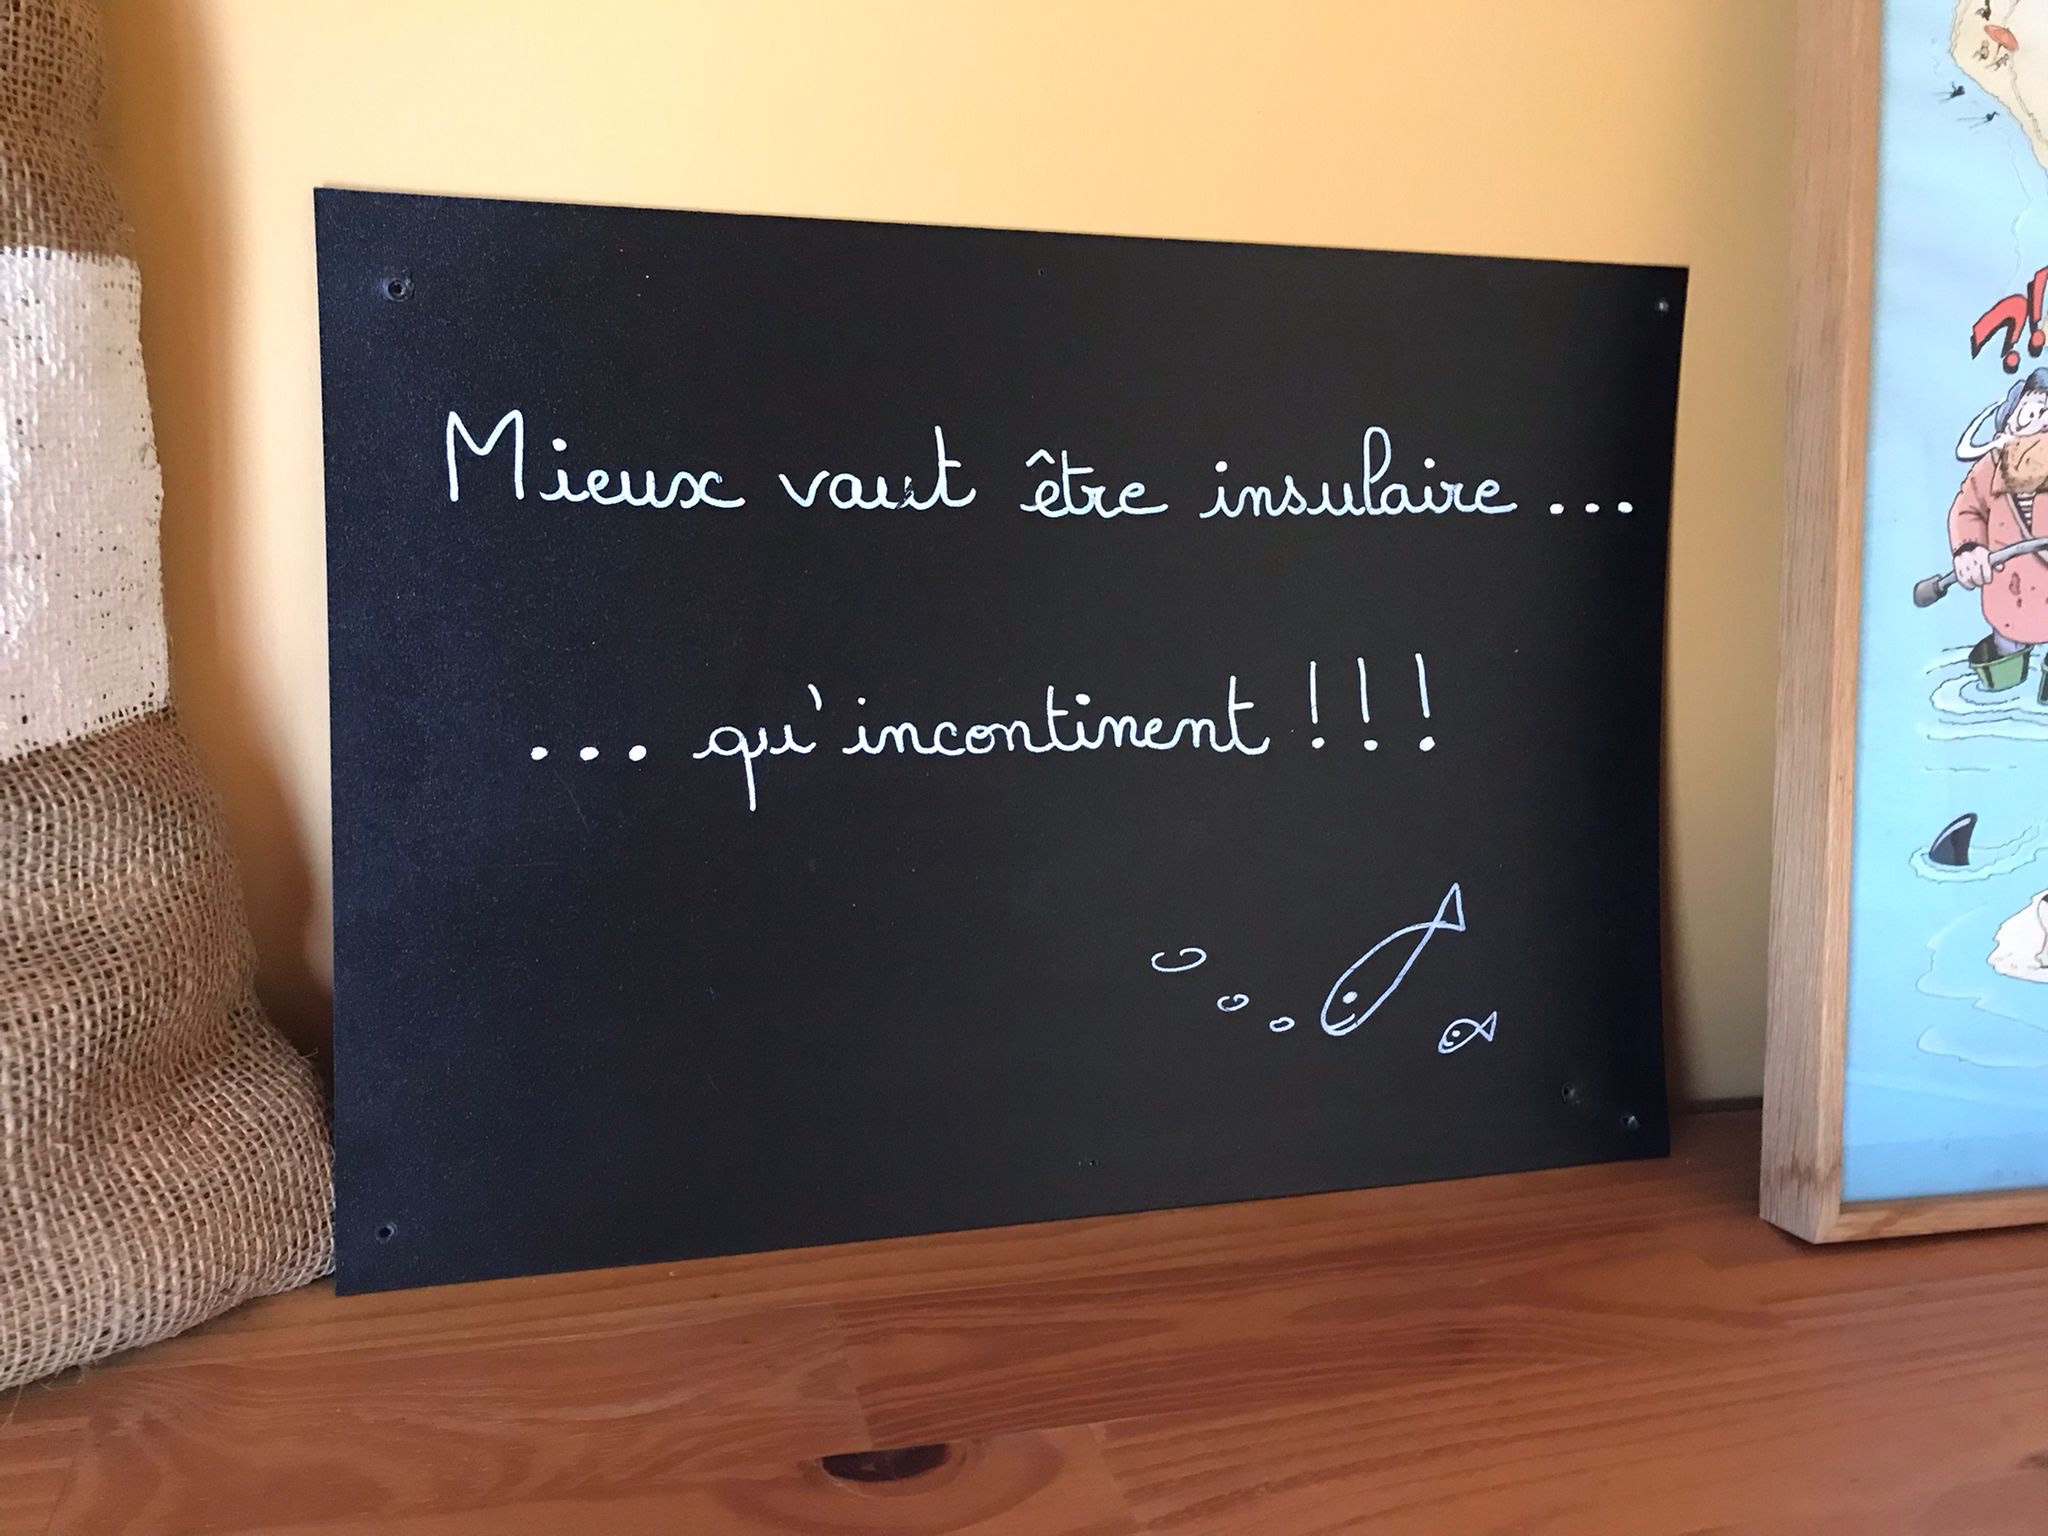 Mieux vaut être insulaire ...
... qu'incontinent !!!
?!